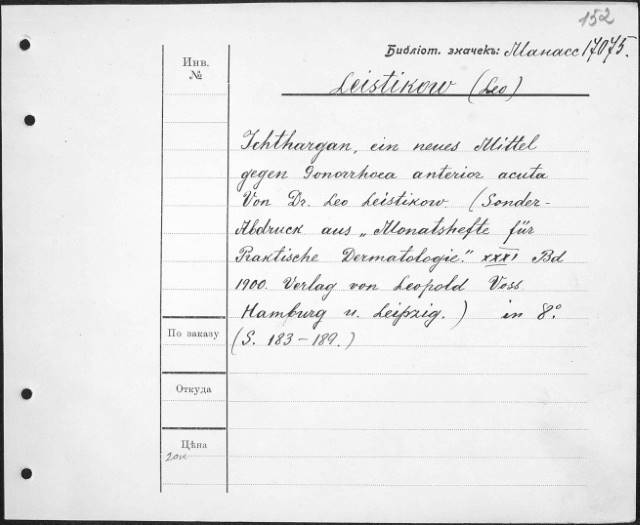 152
Библіот. значекъ: Манасс 17075.
Инв.
№
Leistikow (Leo)
Ichthargan, ein neues Mittel
gegen Gonorrhoea anterior acuta
Von Dr. Leo Leistikow. (Sonder-
Abdruck aus „Monatshefte für
Praktische Dermatologie." XXXI Bd
1900. Verlag von Leopold Voss
Hamburg u. Leipzig.) in 8°.
(S. 183-189.)
По заказу
Откуда
Цѣна
20к